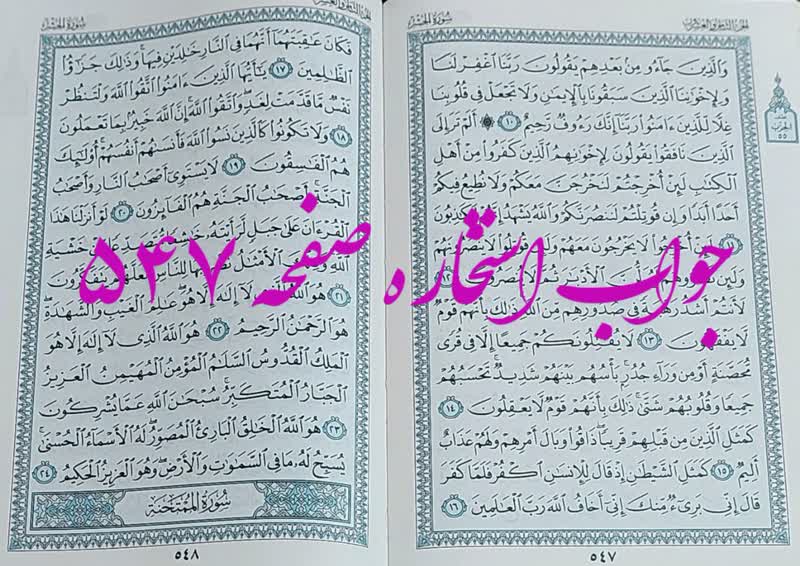 الجزء الثامن والعشرون
سورة الحشر
وَالَّذِينَ جَآءُو مِنۢ بَعْدِهِمْ يَقُولُونَ رَبَّنَا ٱغْفِرْ لَنَا
وَلِإِخْوَٰنِنَا ٱلَّذِينَ سَبَقُونَا بِٱلْإِيمَٰنِ وَلَا تَجْعَلْ فِى قُلُوبِنَا
غِلًّا لِّلَّذِينَ ءَامَنُوا۟ رَبَّنَآ إِنَّكَ رَءُوفٌ رَّحِيمٌ ١٠ ۞ أَلَمْ تَرَ إِلَى
ٱلَّذِينَ نَافَقُوا۟ يَقُولُونَ لِإِخْوَٰنِهِمُ ٱلَّذِينَ كَفَرُوا۟ مِنْ أَهْلِ
ٱلْكِتَٰبِ لَئِنْ أُخْرِجْتُمْ لَنَخْرُجَنَّ مَعَكُمْ وَلَا نُطِيعُ فِيكُمْ
أَحَدًا أَبَدًا وَإِن قُوتِلْتُمْ لَنَنصُرَنَّكُمْ وَٱللَّهُ يَشْهَدُ إِنَّهُمْ لَكَٰذِبُونَ
١١ لَئِنْ أُخْرِجُوا۟ لَا يَخْرُجُونَ مَعَهُمْ وَلَئِن قُوتِلُوا۟ لَا يَنصُرُونَهُمْ
وَلَئِن نَّصَرُوهُمْ لَيُوَلُّنَّ ٱلْأَدْبَٰرَ ثُمَّ لَا يُنصَرُونَ ١٢
لَأَنتُمْ أَشَدُّ رَهْبَةً فِى صُدُورِهِم مِّنَ ٱللَّهِ ذَٰلِكَ بِأَنَّهُمْ قَوْمٌ
لَّا يَفْقَهُونَ ١٣ لَا يُقَٰتِلُونَكُمْ جَمِيعًا إِلَّا فِى قُرًى
مُّحَصَّنَةٍ أَوْ مِن وَرَآءِ جُدُرٍۭ بَأْسُهُم بَيْنَهُمْ شَدِيدٌ تَحْسَبُهُمْ
جَمِيعًا وَقُلُوبُهُمْ شَتَّىٰ ذَٰلِكَ بِأَنَّهُمْ قَوْمٌ لَّا يَعْقِلُونَ ١٤
كَمَثَلِ ٱلَّذِينَ مِن قَبْلِهِمْ قَرِيبًا ذَاقُوا۟ وَبَالَ أَمْرِهِمْ وَلَهُمْ عَذَابٌ
أَلِيمٌ ١٥ كَمَثَلِ ٱلشَّيْطَٰنِ إِذْ قَالَ لِلْإِنسَٰنِ ٱكْفُرْ فَلَمَّا كَفَرَ
قَالَ إِنِّى بَرِىٓءٌ مِّنكَ إِنِّىٓ أَخَافُ ٱللَّهَ رَبَّ ٱلْعَٰلَمِينَ ١٦
٥٤٧
الحزب
٥٥
سورة الحشر
فَكَانَ عَٰقِبَتَهُمَآ أَنَّهُمَا فِى ٱلنَّارِ خَٰلِدَيْنِ فِيهَا وَذَٰلِكَ جَزَٰٓؤُا۟
ٱلظَّٰلِمِينَ ١٧ يَٰٓأَيُّهَا ٱلَّذِينَ ءَامَنُوا۟ ٱتَّقُوا۟ ٱللَّهَ وَلْتَنظُرْ
نَفْسٌ مَّا قَدَّمَتْ لِغَدٍ وَٱتَّقُوا۟ ٱللَّهَ إِنَّ ٱللَّهَ خَبِيرٌۢ بِمَا تَعْمَلُونَ
١٨ وَلَا تَكُونُوا۟ كَٱلَّذِينَ نَسُوا۟ ٱللَّهَ فَأَنسَىٰهُمْ أَنفُسَهُمْ أُو۟لَٰٓئِكَ
هُمُ ٱلْفَٰسِقُونَ ١٩ لَا يَسْتَوِىٓ أَصْحَٰبُ ٱلنَّارِ وَأَصْحَٰبُ
ٱلْجَنَّةِ أَصْحَٰبُ ٱلْجَنَّةِ هُمُ ٱلْفَآئِزُونَ ٢٠ لَوْ أَنزَلْنَا هَٰذَا
ٱلْقُرْءَانَ عَلَىٰ جَبَلٍ لَّرَأَيْتَهُۥ خَٰشِعًا مُّتَصَدِّعًا مِّنْ خَشْيَةِ
ٱللَّهِ وَتِلْكَ ٱلْأَمْثَٰلُ نَضْرِبُهَا لِلنَّاسِ لَعَلَّهُمْ يَتَفَكَّرُونَ
٢١ هُوَ ٱللَّهُ ٱلَّذِى لَآ إِلَٰهَ إِلَّا هُوَ عَٰلِمُ ٱلْغَيْبِ وَٱلشَّهَٰدَةِ
هُوَ ٱلرَّحْمَٰنُ ٱلرَّحِيمُ ٢٢ هُوَ ٱللَّهُ ٱلَّذِى لَآ إِلَٰهَ إِلَّا هُوَ
ٱلْمَلِكُ ٱلْقُدُّوسُ ٱلسَّلَٰمُ ٱلْمُؤْمِنُ ٱلْمُهَيْمِنُ ٱلْعَزِيزُ
ٱلْجَبَّارُ ٱلْمُتَكَبِّرُ سُبْحَٰنَ ٱللَّهِ عَمَّا يُشْرِكُونَ
٢٣ هُوَ ٱللَّهُ ٱلْخَٰلِقُ ٱلْبَارِئُ ٱلْمُصَوِّرُ لَهُ ٱلْأَسْمَآءُ ٱلْحُسْنَىٰ
يُسَبِّحُ لَهُۥ مَا فِى ٱلسَّمَٰوَٰتِ وَٱلْأَرْضِ وَهُوَ ٱلْعَزِيزُ ٱلْحَكِيمُ ٢٤
سُورَةُ الْمُمْتَحَنَةِ
٥٤٨
جواب استخاره صفحه ۵۴۷